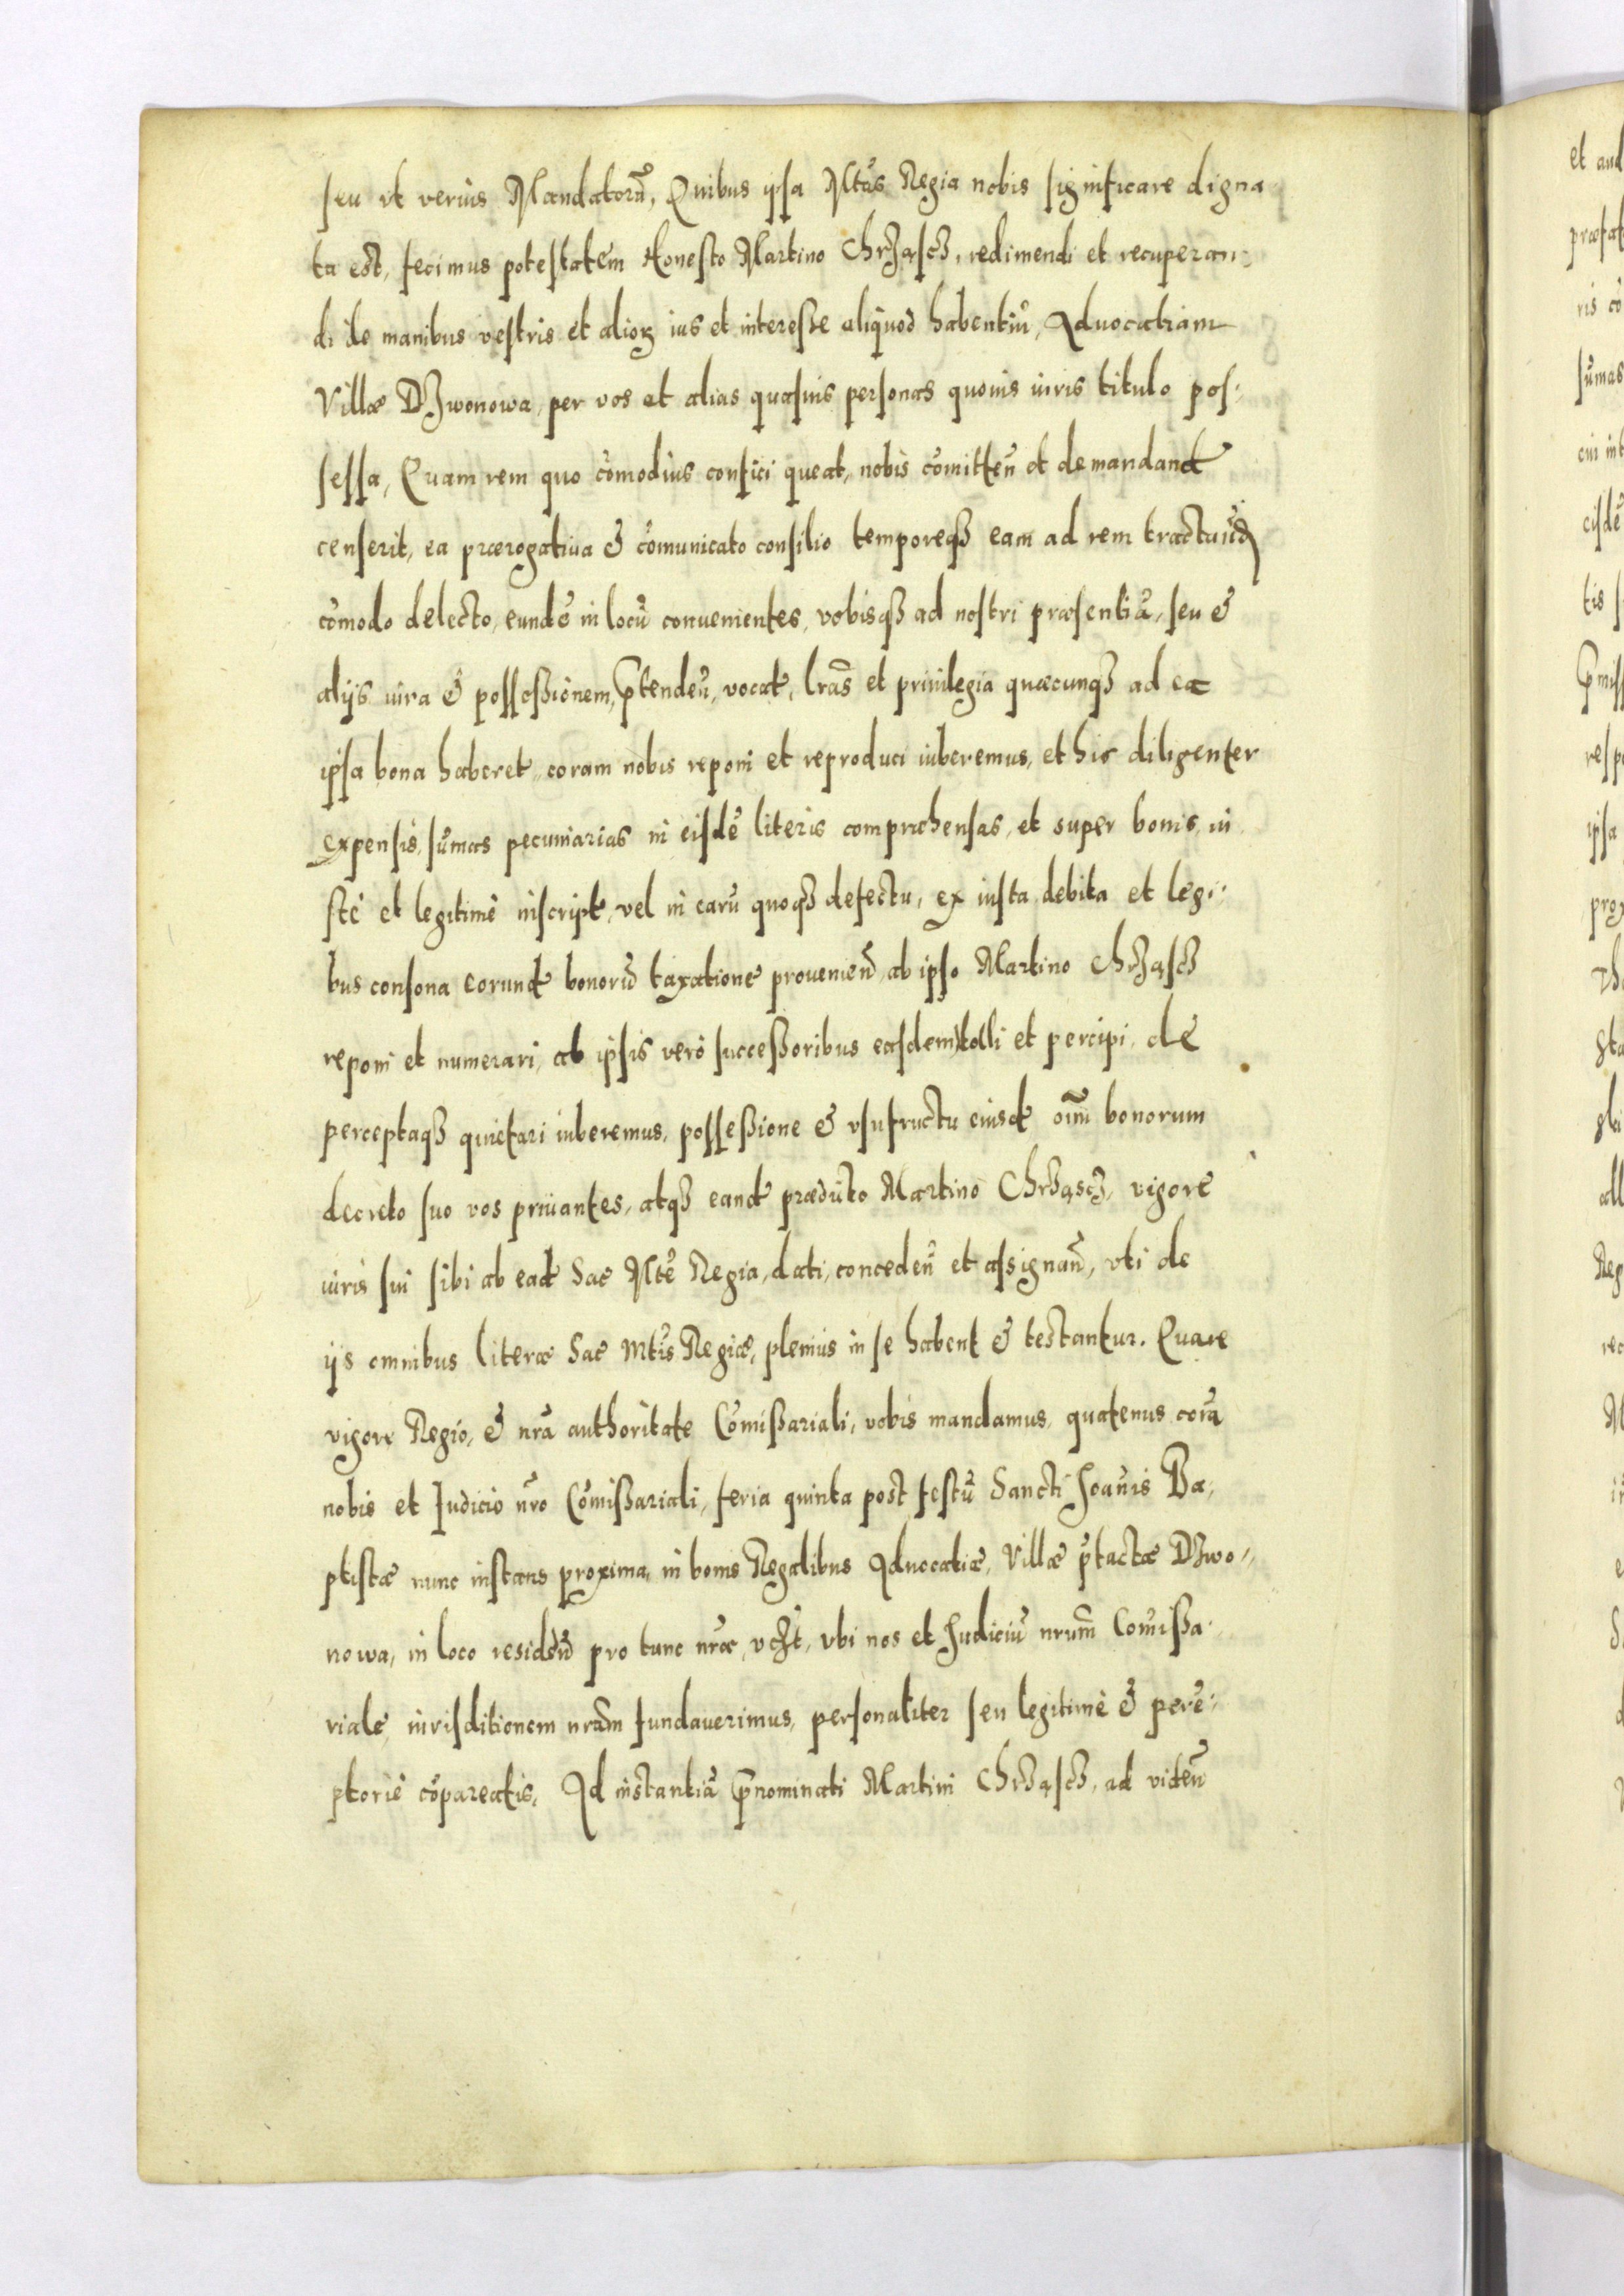 seu ut verius Mandatorũ, Quibus ipsa Mtãs Regia nobis significare digna
ta est, fecimus potestatem Honesto Martino Chrząsch, redimendi et recuperan-
di de manibus vestris et alioꝝ ius et interesse aliquod habentiũ, Aduocatiam
Villæ Dzwonowa, per vos et alias quasuis personas quouis iuris titulo pos-
sessa, Quam rem quo cõmodius confici queat, nobis cõmitteñ et demandand
censerit, ea prærogatiua & cõmunicato consilio temporeqꝫ eam ad rem
cõmodo delecto, eundẽ in locũ conuenientes, vobisqꝫ ad nostri præsentiã, seu &
alijs iura & possessionem, p̃tendeñ, vocat, lrãs et priuilegia quæcunqꝫ ad ea
ipsa bona haberet, coram nobis reponi et reproduci iuberemus, et his diligenter
expensis, sũmas pecuniarias in eisdẽ literis comprehensas, et super bonis, iu
stè et legitimè inscript, vel in earũ quoqꝫ defectu, ex iusta debita et legi-
bus consona eorund bonorũ taxatione proueniendˀ, ab ipso Martino Chrząsch
reponi et numerari, ab ipsis verò successoribus easdem tolli et percipi, de
perceptaqꝫ quietari iuberemus, possessione & vsufructu eiusd oĩm bonorum
decreto suo vos priuantes, atqꝫ eand prædicto Martino Chrząsch, vigore
iuris sui sibi ab ead Sac Mtẽ Regia, dati, concedeñ et assignañ, vti de
ijs omnibus literæ Sac Mtis Regiæ, plenius in se habent & testantur. Quare
vigore Regio, & nrã authoritate Cõmissariali, vobis mandamus, quatenus corã
nobis et Iudicio nr̃o Cõmissariali, feria quinta post festũ Sancti Joañis Ba-
ptistæ nunc instans proxima, in bonis Regalibus Aduocatiæ, Villæ p̃tactæ Dzwo-
nowa, in loco resideñ pro tunc nr̃æ, vczt, vbi nos et Judiciũ nrum̃ Comissa-
riale, iurisditionem nrãm fundauerimus, personaliter seu legitimè & perẽ-
ptoriè cõpareatis, Ad instantiã p̃nominati Martini Chrząsch, ad videñ